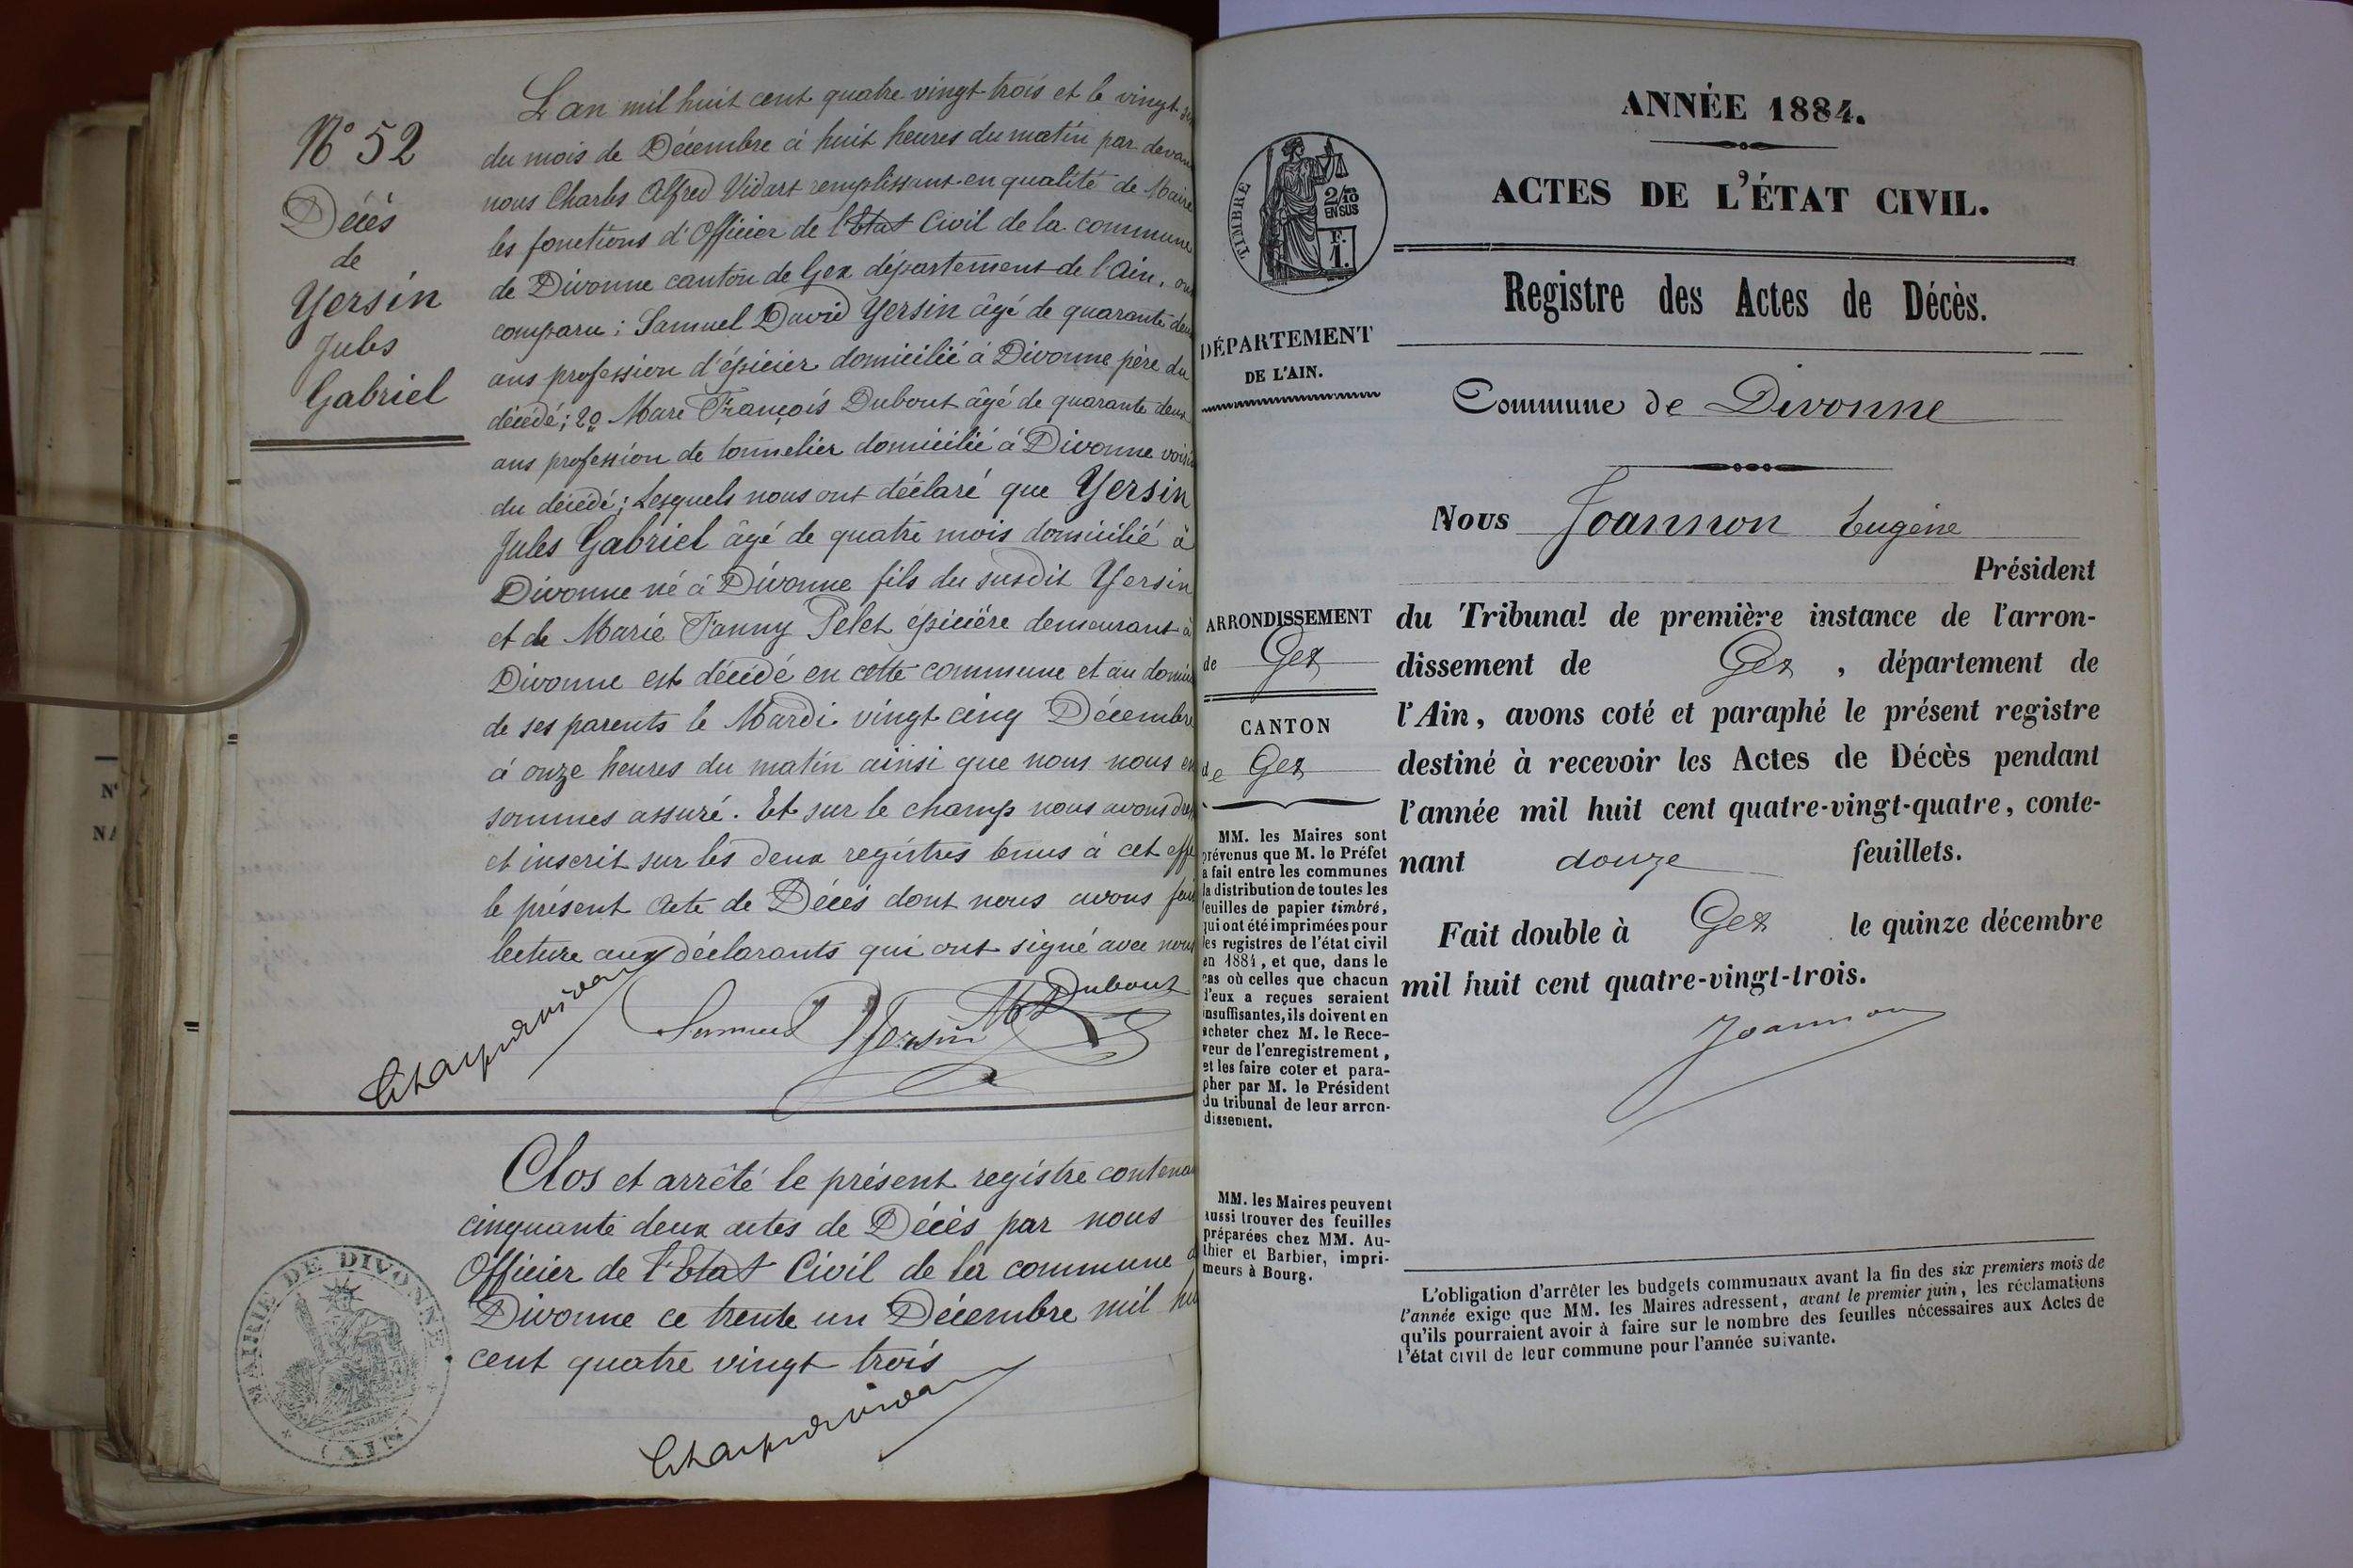 N° 52
Décès
de
Yersin
Jules
Gabriel
L'an mil huit cent quatre vingt trois et le vingt
du mois de Décembre à huit heures du matin par devan
nous Charles Alfred Vidart remplissant en qualité de Maire
les fonctions d'Officier de l'Etat Civil de la commune
de Divonne canton de Gex département de l'Ain, on
comparu ; Samuel David Yersin âgé de quarante deu
ans profession d'épicier domicilié à Divonne père du
décédé ; 2° Marc François Dubout âgé de quarante deux
ans profession de tonnelier domicilié à Divonne voisi
du décédé ; Lesquels nous ont déclaré que Yersin
Jules Gabriel âgé de quatre mois domicilié à
Divonne né à Divonne fils du susdit Yersin
et de Marie Fanny Pelet épicière demeurant à
Divonne est décédé en cette commune et au domi
de ses parents le Mardi vingt cinq Décembre
à onze heures du matin ainsi que nous nous en
sommes assuré. Et sur le champ nous avons dre
et inscrit sur les deux registres tenus à cet effe
le présent Acte de Décès dont nous avons fai
lecture aux déclarants qui ont signé avec nous
Samuel Yersin M Dubout
Clos et arrêté le présent registre contena
cinquante deux actes de Décès par nous
Officier de l'Etat Civil de la commune d
Divonne ce trente un Décembre mil hu
cent quatre vingt trois
MAIRIE DE DIVONNE
(AIN)
ANNÉE 1884.
ACTES DE L'ÉTAT CIVIL.
Registre des Actes de Décès.
TIMBRE
2/10
EN SUS
F.
1.
DÉPARTEMENT
DE L'AIN.
Commune de Divonne
Nous Joannon Eugène
Président
du Tribunal de première instance de l'arron-
dissement de Gex, département de
l'Ain, avons coté et paraphé le présent registre
destiné à recevoir les Actes de Décès pendant
l'année mil huit cent quatre-vingt-quatre, conte-
nant douze feuillets.
Fait double à Gex le quinze décembre
mil huit cent quatre-vingt-trois.
Joannon
ARRONDISSEMENT
de Gex
CANTON
de Gex
MM. les Maires sont
prévenus que M. le Préfet
a fait entre les communes
la distribution de toutes les
feuilles de papier timbré,
qui ont été imprimées pour
les registres de l'état civil
en 1884, et que, dans le
cas où celles que chacun
d'eux a reçues seraient
insuffisantes, ils doivent en
acheter chez M. le Rece-
veur de l'enregistrement,
et les faire coter et para-
pher par M. le Président
du tribunal de leur arron-
dissement.
MM. les Maires peuvent
aussi trouver des feuilles
préparées chez MM. Au-
thier et Barbier, impri-
meurs à Bourg.
L'obligation d'arrêter les budgets communaux avant la fin des six premiers mois de
l'année exige que MM. les Maires adressent, avant le premier juin, les réclamations
qu'ils pourraient avoir à faire sur le nombre des feuilles nécessaires aux Actes de
l'état civil de leur commune pour l'année suivante.